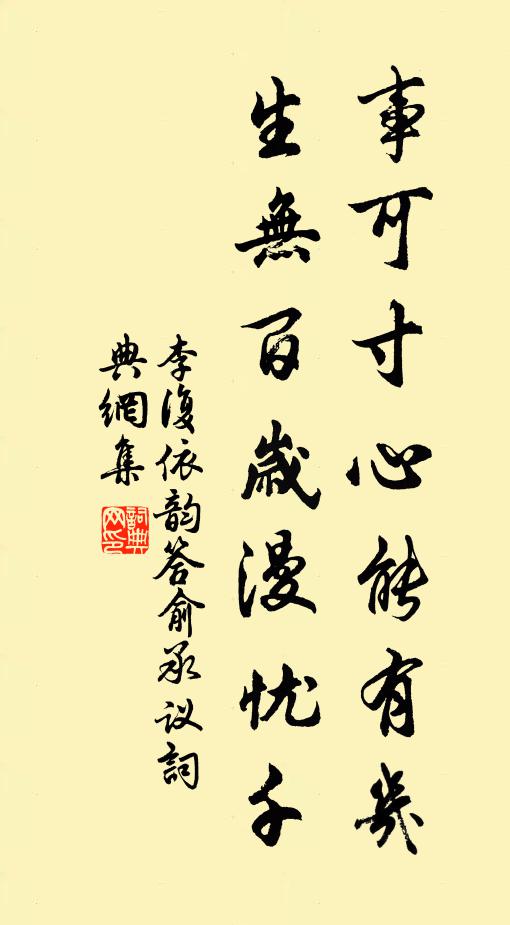 事可寸心能有幾
生無百歲漫忧千
李復依韵答俞承议詞
典網集
詞典网印